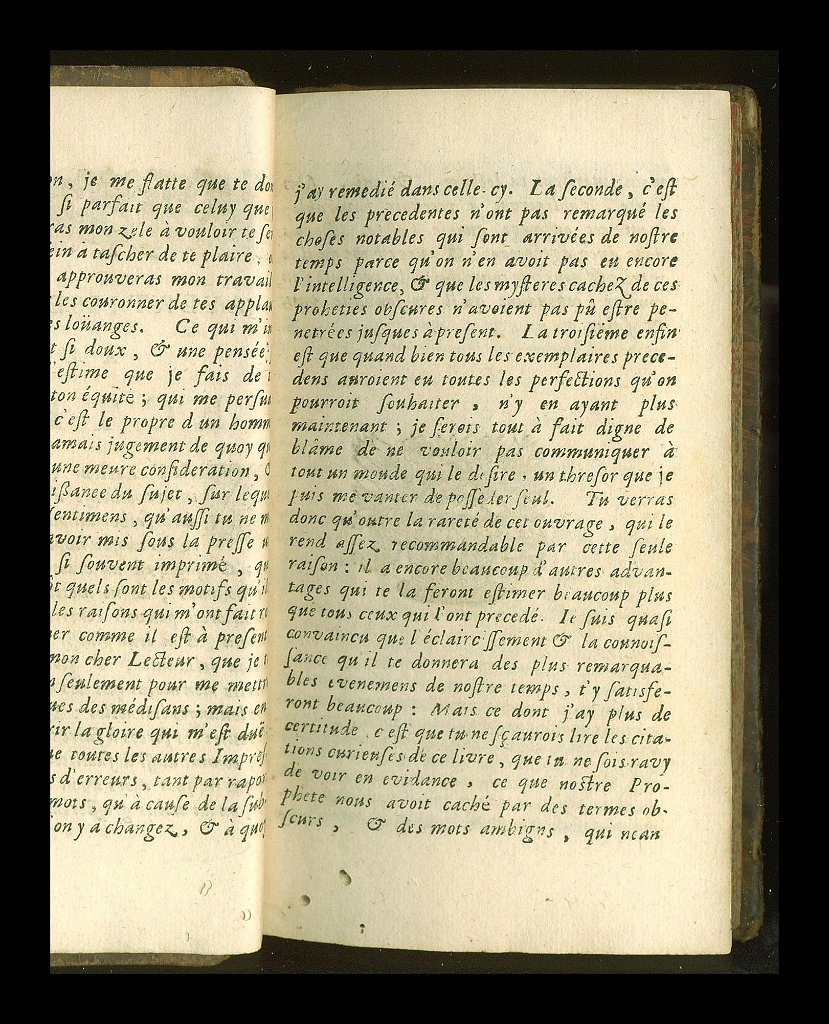 on, je me flatte que te do
si parfait que celuy que
ras mon zele à vouloir te se
ein à tascher de te plaire,
approuveras mon travail
les couronner de tes appla
es loüanges. Ce qui m'in
t si doux, & une pensée
'estime que je fais de
ton équité; qui me persua
c'est le propre d'un homm
amais jugement de quoy qu
une meure consideration,
issance du sujet, sur leque
sentimens, qu'aussi tu ne m
avoir mis sous la presse u
si souvent imprimé, qu
ôt quels sont les motifs qu'il
les raisons qui m'ont fait re
er comme il est à present
mon cher Lecteur, que je
n seulement pour me mettre
ues des médisans; mais en
rir la gloire qui m'est duë
ue toutes les autres Impres
s d'erreurs, tant par rapo
mots, qu'à cause de la sub
ion y a changez, & à quoy
j'ay remedié dans celle-cy. La seconde, c'est
que les precedentes n'ont pas remarqué les
choses notables qui sont arrivées de nostre
temps parce qu'on n'en avoit pas eu encore
l'intelligence, & que les mysteres cachez de ces
propheties obscures n'avoient pas pû estre pe-
netrées jusques à present. La troisiéme enfin
est que quand bien tous les exemplaires prece-
dens auroient eu toutes les perfections qu'on
pourroit souhaiter, n'y en ayant plus
maintenant; je serois tout à fait digne de
blâme de ne vouloir pas communiquer à
tout un monde qui le desire, un thresor que je
puis me vanter de posseder seul. Tu verras
donc qu'outre la rareté de cet ouvrage, qui le
rend assez recommandable par cette seule
raison: il a encore beaucoup d'autres advan-
tages qui te la feront estimer beaucoup plus
que tous ceux qui l'ont precedé. Ie suis quasi
convaincu que l'éclaircissement & la connois-
sance qu'il te donnera des plus remarqua-
bles evenemens de nostre temps, t'y satisfe-
ront beaucoup: Mais ce dont j'ay plus de
certitude, c'est que tu ne sçaurois lire les cita-
tions curieuses de ce livre, que tu ne sois ravy
de voir en evidance, ce que nostre Pro-
phete nous avoit caché par des termes ob-
scurs, & des mots ambigus, qui nean